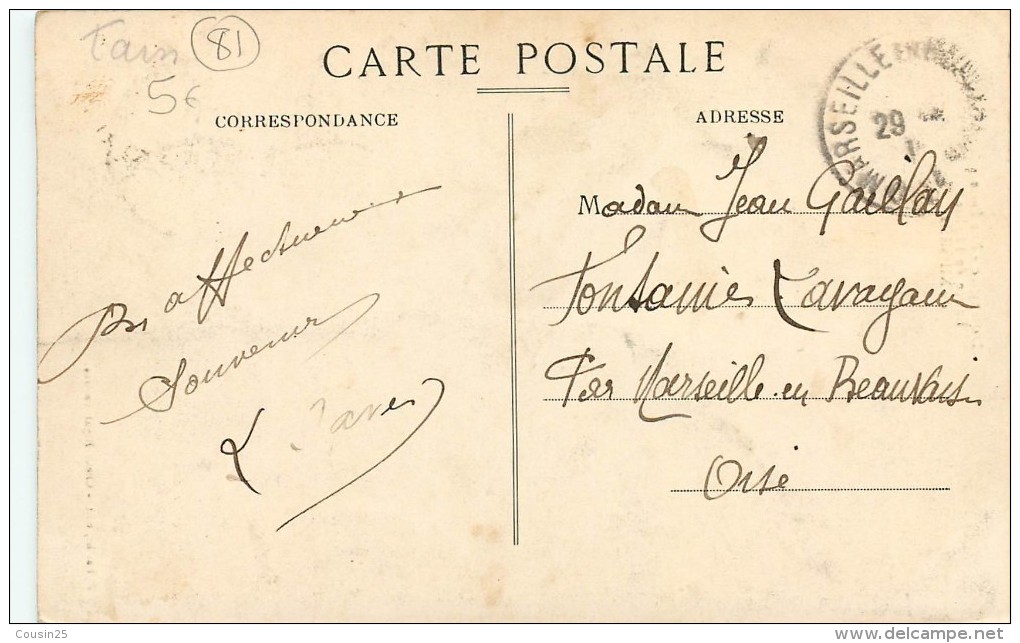 Tarn 81
5€
CARTE POSTALE
CORRESPONDANCE
ADRESSE
MARSEILLE
29
Bien affectueux
Souvenir
L.
Madame Jean Gaillay
Fontaine Lavaganne
Par Marseille en Beauvaisis
Oise
Cousin25